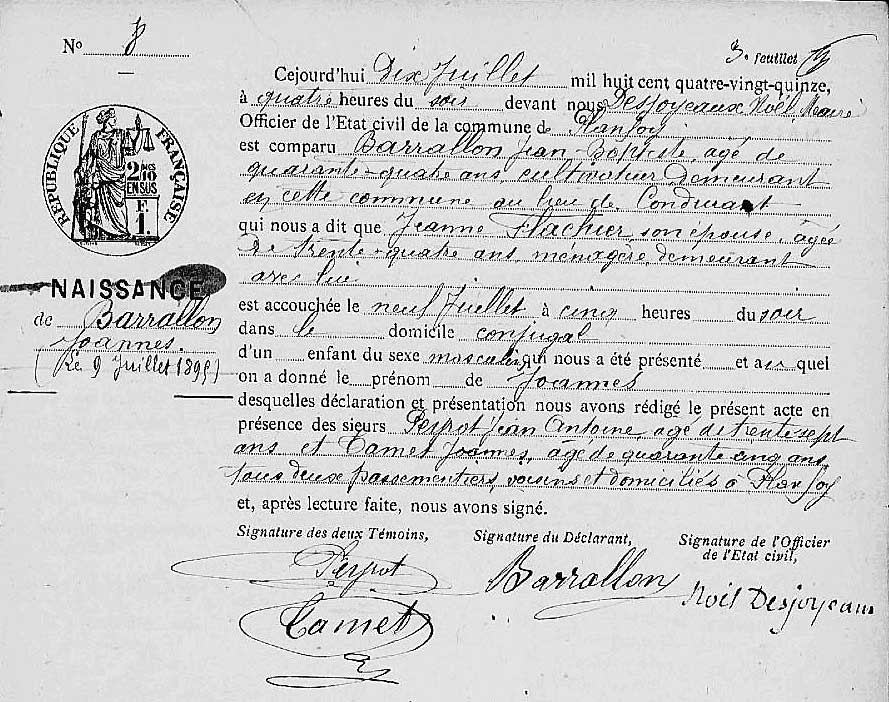 No 8
3e feuillet
Cejourd'hui Dix Juillet mil huit cent quatre-vingt-quinze,
à quatre heures du soir devant nous Desjoyeaux Noël, Maire
Officier de l'Etat civil de la commune de Planfoy
est comparu Barrallon Jean-Baptiste, agé de
quarante-quatre ans, cultivateur demeurant
en cette commune au lieu de Condurant
qui nous a dit que Jeanne Flachier, son épouse, âgée
de trente-quatre ans, ménagère, demeurant
avec lui
est accouchée le neuf Juillet à cinq heures du soir
dans le domicile conjugal
d'un enfant du sexe masculin qui nous a été présenté et au quel
on a donné le prénom de Joannes
desquelles déclaration et présentation nous avons rédigé le présent acte en
présence des sieurs Peyrot Jean Antoine, agé de trente sept
ans et Tamet Joannes, âgé de quarante cinq ans,
tous deux passementiers, voisins et domiciliés à Planfoy
et, après lecture faite, nous avons signé.
RÉPUBLIQUE FRANÇAISE
2 MES
10
EN SUS
F
1.
NAISSANCE
de Barrallon
Joannes.
(Le 9 Juillet 1895)
Signature des deux Témoins,
Signature du Déclarant,
Signature de l'Officier
de l'Etat civil,
Peyrot
Barrallon
Noël Desjoyeaux
Tamet